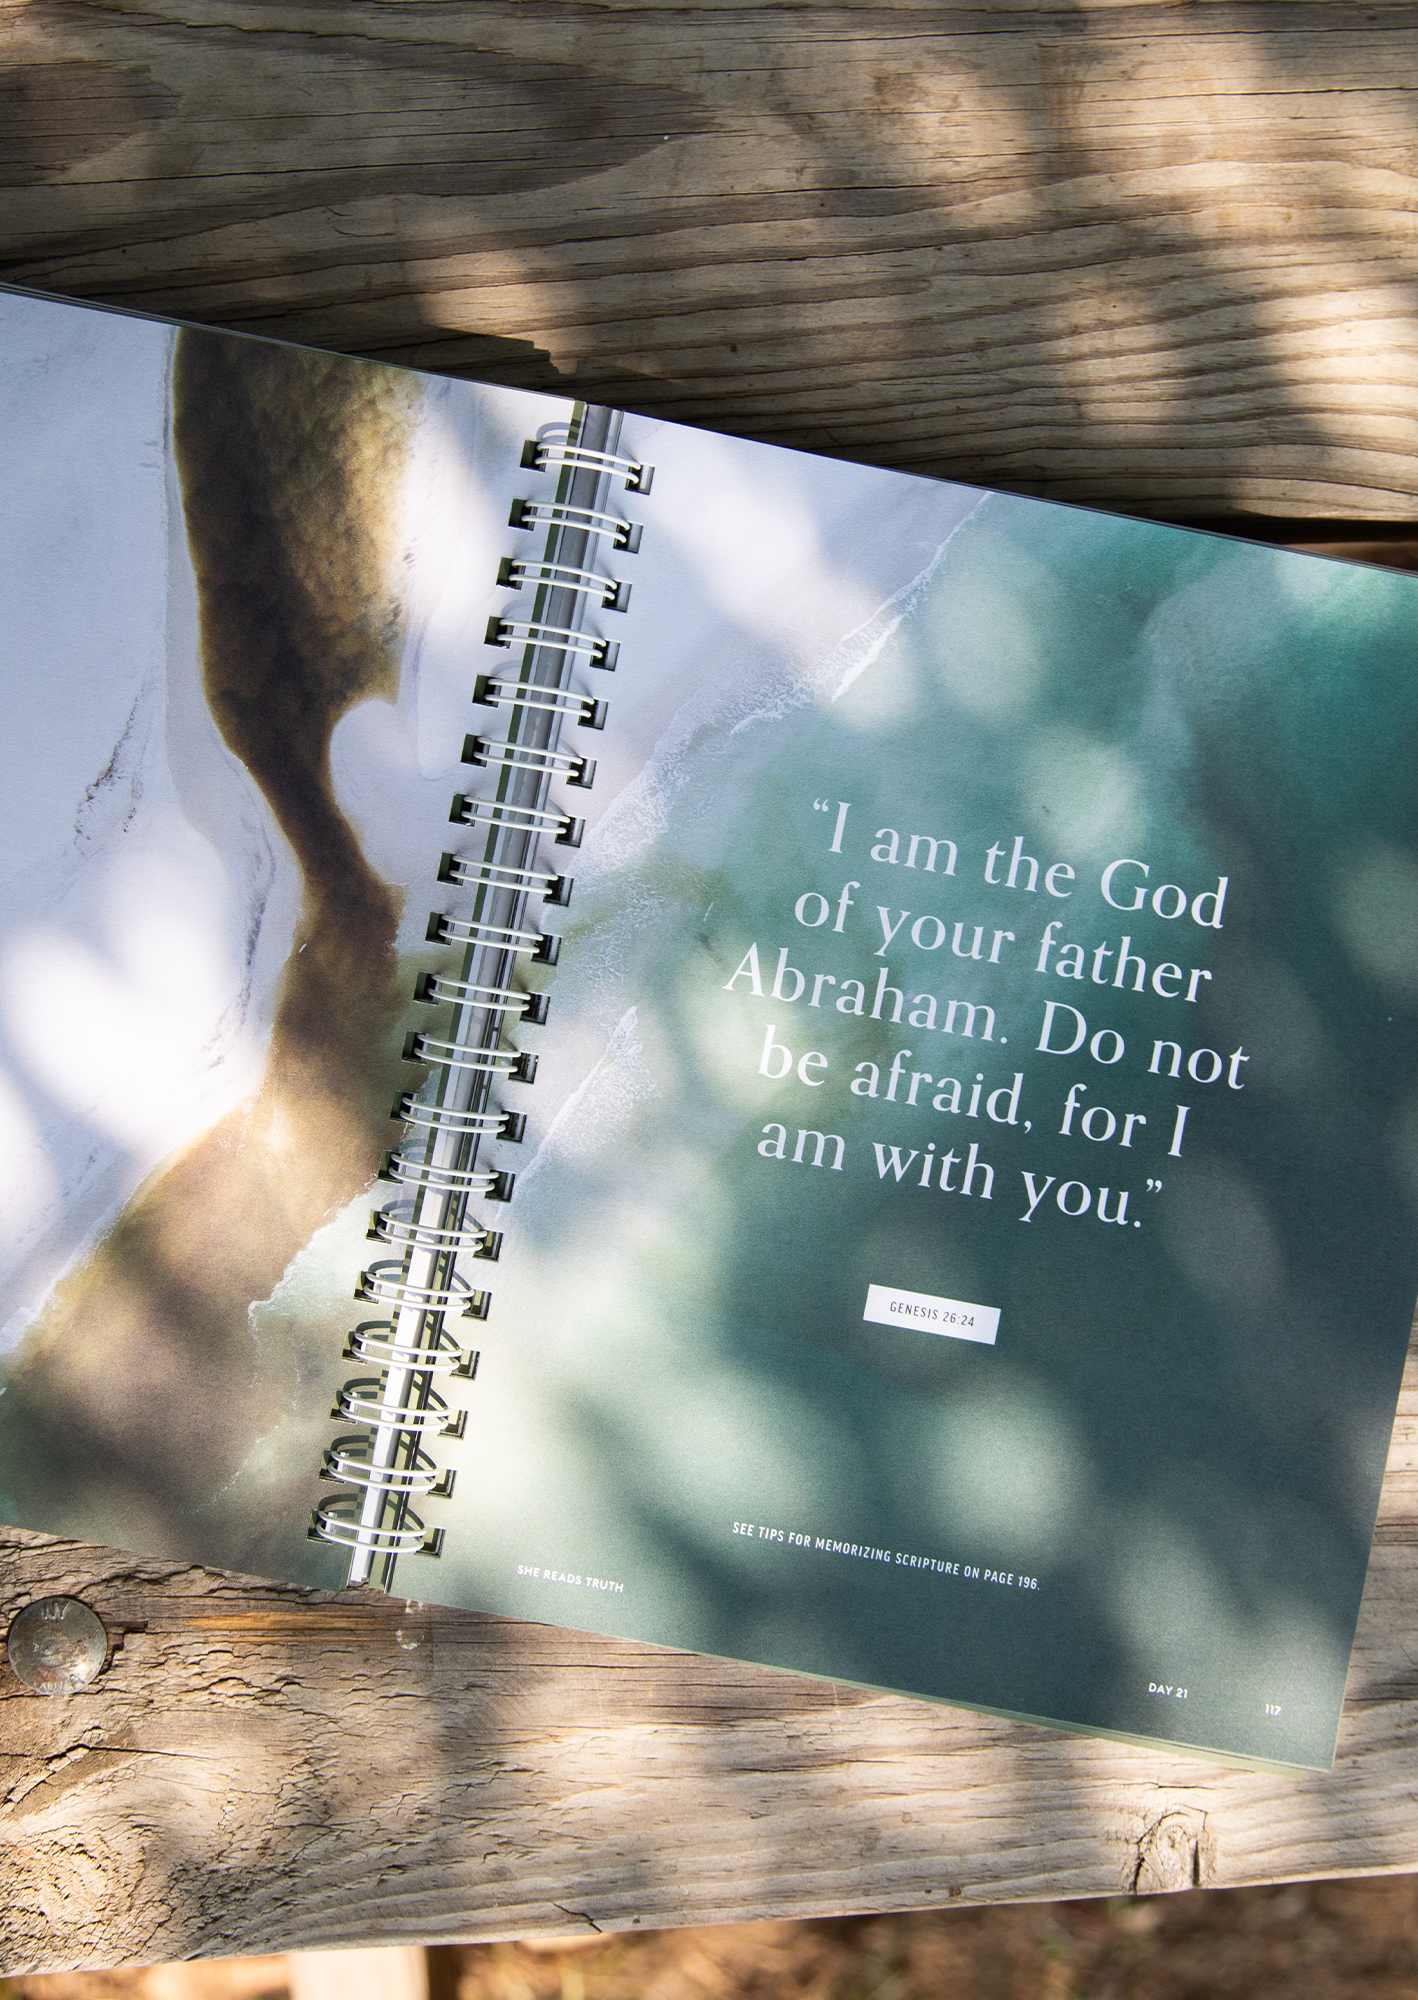 “I am the God
of your father
Abraham. Do not
be afraid, for I
am with you.”
GENESIS 26:24
SEE TIPS FOR MEMORIZING SCRIPTURE ON PAGE 196.
SHE READS TRUTH
DAY 21
117